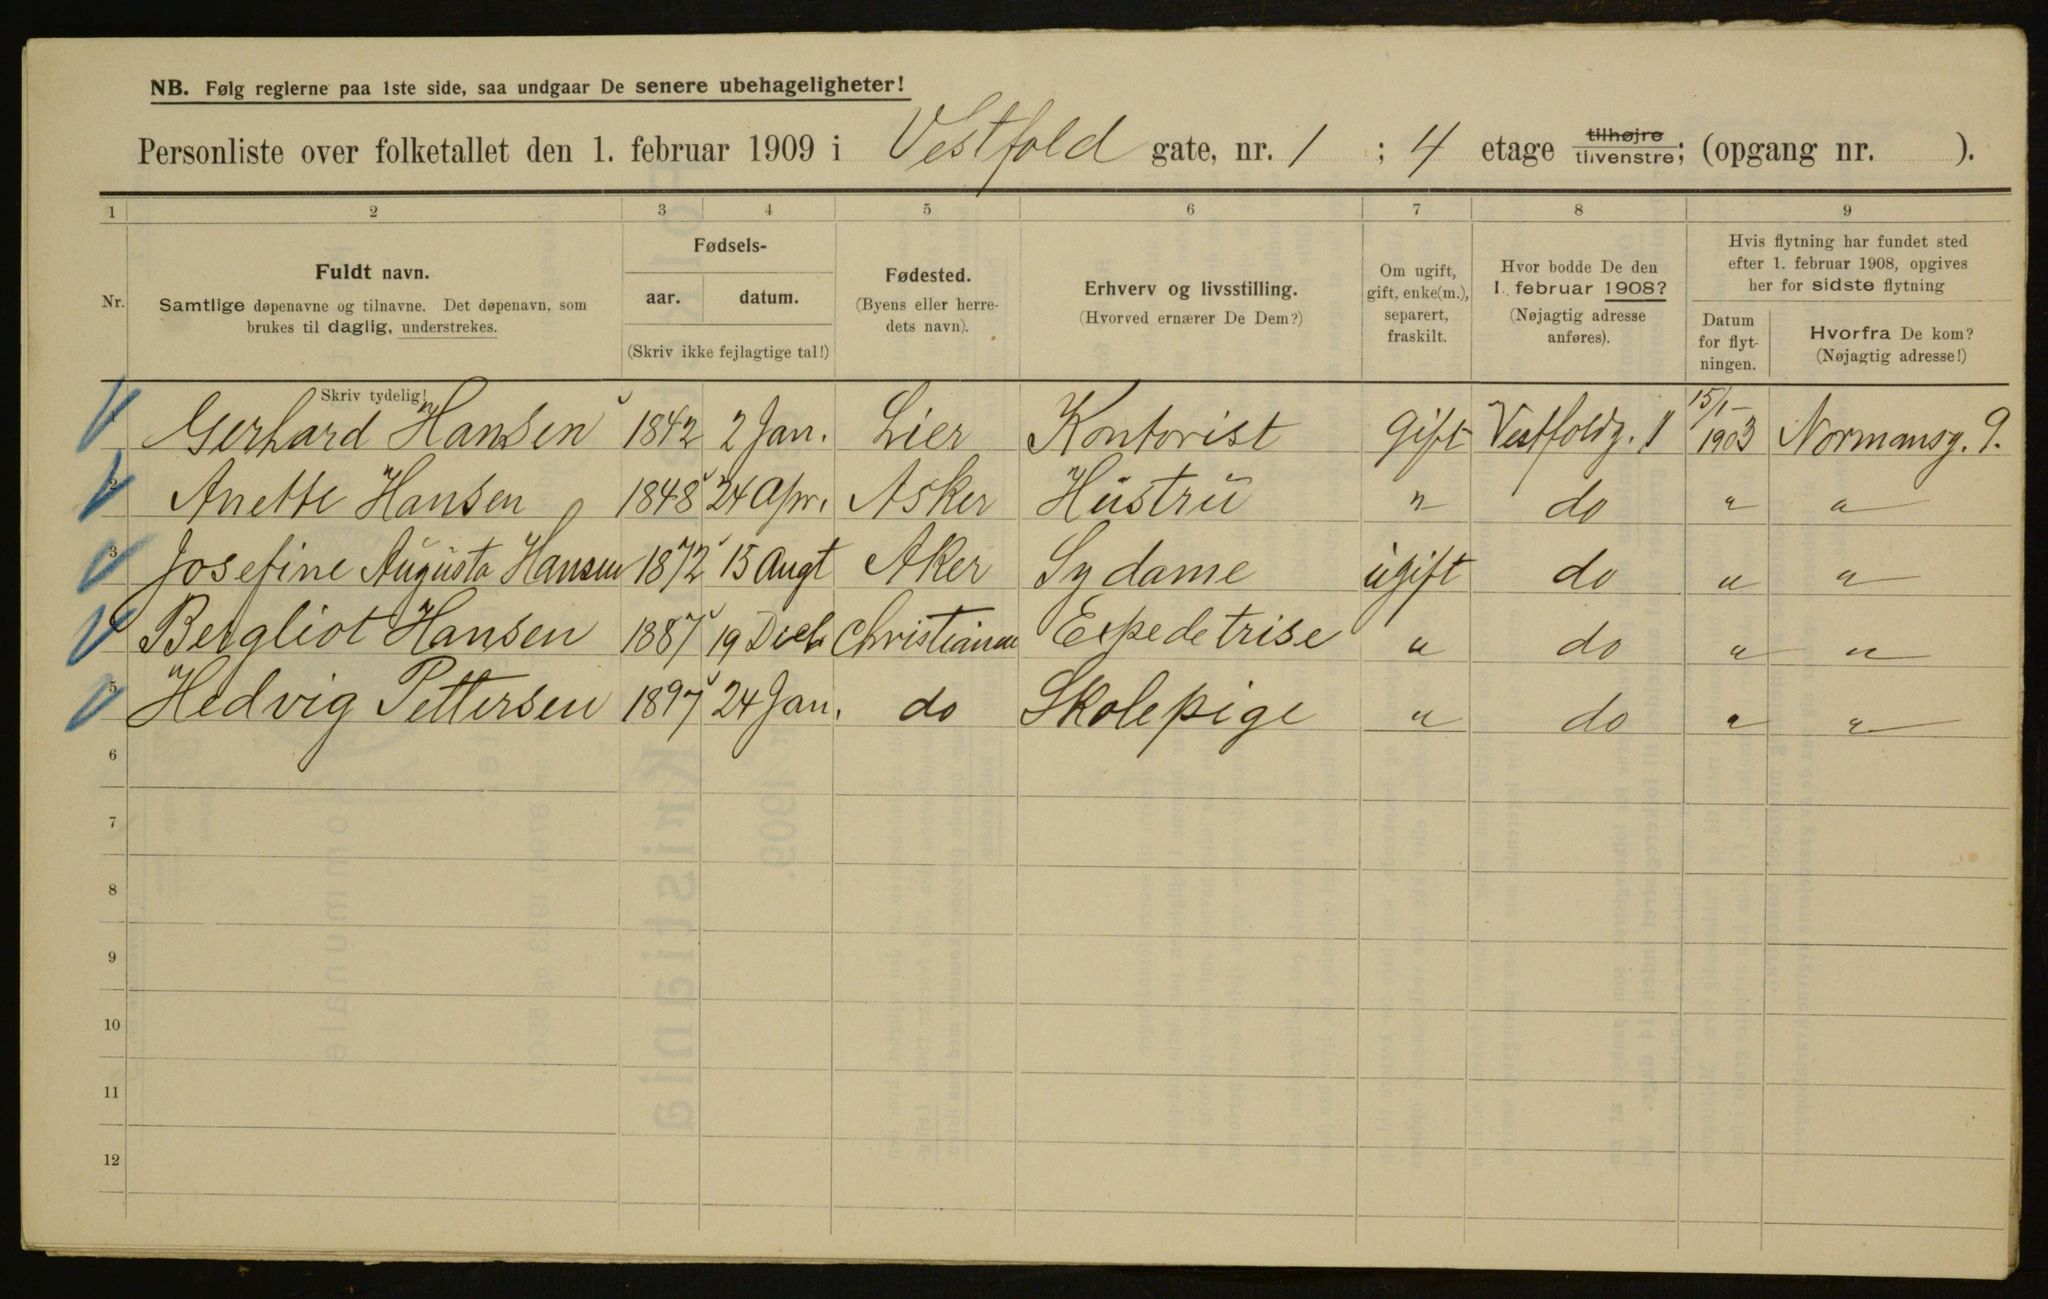 NB. Følg reglerne paa 1ste side, saa undgaar De senere ubehageligheter!
Personliste over folketallet den 1. februar 1909 i Vestfold gate, nr. 1 ; 4 etage tilhøjre tilvenstre; (opgang nr. ).
1 2 3 4 5 6 7 8 9
Nr.
Fuldt navn.
Samtlige døpenavne og tilnavne. Det døpenavn, som
brukes til daglig, understrekes.
Skriv tydelig!
Fødsels-
aar. datum.
(Skriv ikke fejlagtige tal!)
Fødested.
(Byens eller herre-
dets navn).
Erhverv og livsstilling.
(Hvorved ernærer De Dem?)
Om ugift,
gift, enke(m.),
separert,
fraskilt.
Hvor bodde De den
1. februar 1908?
(Nøjagtig adresse
anføres).
Hvis flytning har fundet sted
efter 1. februar 1908, opgives
her for sidste flytning
Datum
for flyt-
ningen.
Hvorfra De kom?
(Nøjagtig adresse!)
1 Gerhard Hansen 1842 2 Jan. Lier Kontorist gift Vestfoldg. 1 15/1-1903 Normansg. 9.
2 Anette Hansen 1848 24 Apr. Asker Hustru " do " "
3 Josefine Augusta Hansen 1872 15 Augt Aker Sydame ugift do " "
4 Bergliot Hansen 1887 19 Decb Christiania Expedetrise " do " "
5 Hedvig Pettersen 1897 24 Jan. do Skolepige " do " "
6
7
8
9
10
11
12